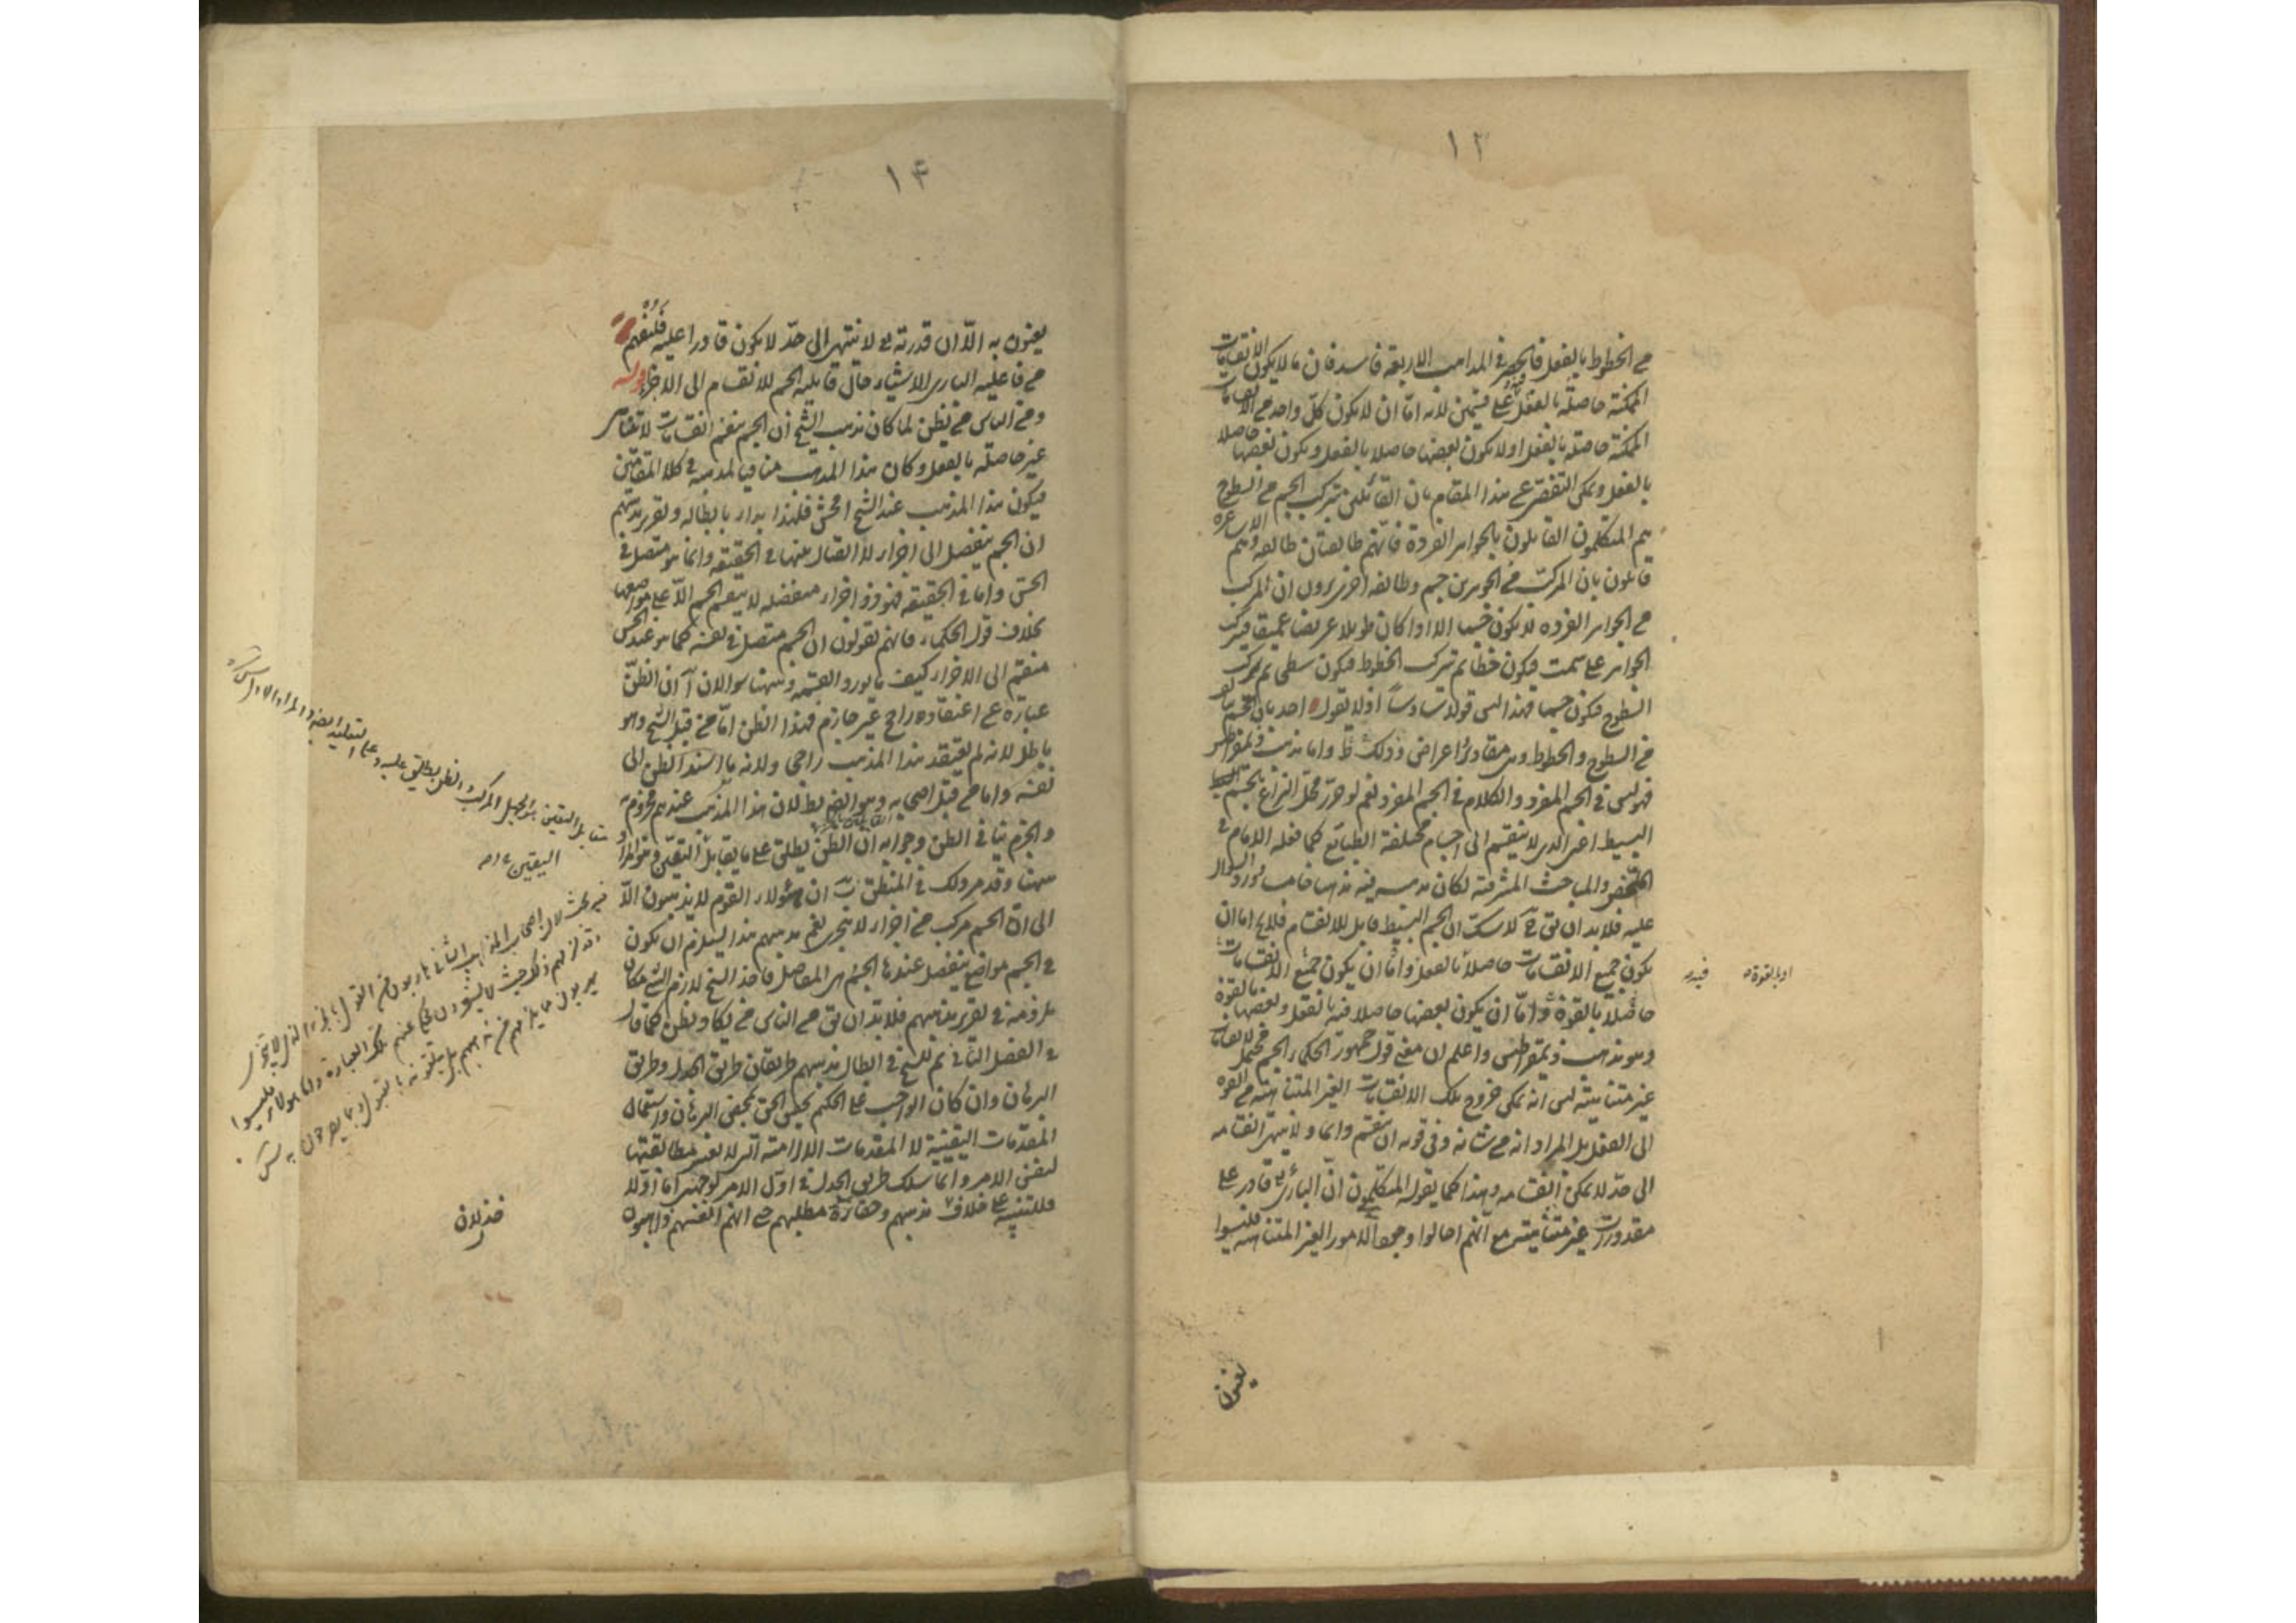 ١٣
من الخطوط بالفعل فالحصر في المذاهب الاربعة فاسد فان ما لا يكون الانقسامات
الممكنة حاصلة بالفعل فيه على قسمين لانه اما ان لا يكون كل واحد من الانقسامات
الممكنة حاصلة بالفعل او لا يكون بعضها حاصلا بالفعل ويكون بعضها حاصلا
بالفعل ويمكن التفصي عن هذا المقام بان القائلين بتركب الجسم من السطوح
هم المتكلمون القائلون بالجواهر الفردة فانهم طائفتان طائفة وهم الاشاعرة
قائلون بان المركب من الجوهرين جسم وطائفة اخرى يرون ان المركب
من الجواهر الفردة لا يكون جسما الا اذا كان طويلا عريضا عميقا فيتركب
الجواهر على سمت فيكون خطا ثم تتركب الخطوط فيكون سطحا ثم يتركب
السطوح فيكون جسما فهذا ليس قولا سادسا اذ لا يقول احد بان الجسم
من السطوح والخطوط وهي مقادير اعراض وذلك ظ واما مذهب ذيمقراطيس
فهو ليس في الجسم المفرد والكلام في الجسم المفرد نعم لو حرر محل النزاع بجسم
البسيط اعنى الذي لا ينقسم الى اجسام مختلفة الطبائع كما فعله الامام في
الملخص والمباحث المشرقية لكان مذهبه فيه مذهبا خامسا يورد السؤال
عليه فلا بد ان يق ح لا شك ان الجسم البسيط قابل للانقسام فلا يخ اما ان
يكون جميع الانقسامات حاصلا بالفعل واما ان يكون جميع الانقسامات
حاصلة بالقوة واما ان يكون بعضها حاصلا فيه بالفعل وبعضها بالقوة
وهو مذهب ذيمقراطيس واعلم ان معنى قول جمهور الحكماء الجسم محتمل لانقسامات
غير متناهية ليس انه يمكن خروج تلك الانقسامات الغير المتناهية من القوة
الى الفعل بل المراد انه من شانه وفي قوته ان ينقسم دائما ولا ينتهي انقسامه
الى حد لا يمكن انقسامه وهذا كما يقوله المتكلمون ان الباري تع قادر على
مقدورات غير متناهية مع انهم احالوا وجود الامور الغير المتناهية فليسوا
او بالقوة
يعنون
١٤
يعنون به الا ان قدرته تع لا ينتهي الى حد لا يكون قادرا عليه فليفهم
من فاعلية الباري الاشياء حال قابلية الجسم للانقسام الى الاجزاء قوله
ومن الناس من يظن لما كان مذهب الشيخ ان الجسم ينقسم انقسامات لا تتناهى
غير حاصلة بالفعل وكان هذا المذهب منافيا لمذهبه في كلا المقامين
فيكون هذا المذهب عند الشيخ افحش فلهذا بدا بابطاله وتقرير مذهبهم
ان الجسم ينفصل الى اجزاء لا اتصال بينها في الحقيقة وانما هو متصل في
الحس واما في الحقيقة فهو ذو اجزاء منفصلة لا ينقسم الجسم الا على مواضعها
بخلاف قول الحكماء فانهم يقولون ان الجسم متصل في نفسه كما هو عند الحس
منقسم الى الاجزاء كيف ما يورد القسمة وههنا سؤالان آ ان الظن
عبارة عن اعتقاد راجح غير جازم فهذا الظن اما من قبل الشيخ وهو
باطل لانه لم يعتقد هذا المذهب راجحا ولانه ما اسند الظن الى
نفسه واما من قبل اصحابه وهو ايضا بط لان هذا المذهب عندهم مجزوم
والجزم ينافي الظن وجوابه ان الظن يطلق على ما يقابل اليقين وهو المراد
ههنا وقد مر ذلك في المنطق ب ان هؤلاء القوم لا يذهبون الا
الى ان الجسم مركب من اجزاء لا تتجزى نعم مذهبهم هذا يستلزم ان يكون
في الجسم مواضع ينفصل عندها الجسم هي المفاصل فاخذ الشيخ لازم الشيء مكان
ملزومه في تقرير مذهبهم فلا بد ان يق من الناس من يكاد يظن كما قال
في الفصل الثاني ثم للشيخ في ابطال مذهبهم طريقان طريق الجدل وطريق
البرهان وان كان الواجب على الحكيم تحقيق الحق بمحض البرهان واستعمال
المقدمات اليقينية لا المقدمات الالزامية التي لا يعتبر مطابقتها
لنفس الامر وانما سلك طريق الجدل في اول الامر لوجهين اما اولا
فللتنبيه على خلاف مذهبهم وحقارة مطلبهم حتى انهم انفسهم ذاهبون
مقابل اليقين هو الجهل المركب والظن يطلق عليه وعلى التقليد ايضا والمراد
اليقين
فيه بحث لان اصحاب المذهب الثاني هاربون من القول بالجزء الذي لا يتجزى
خذلان